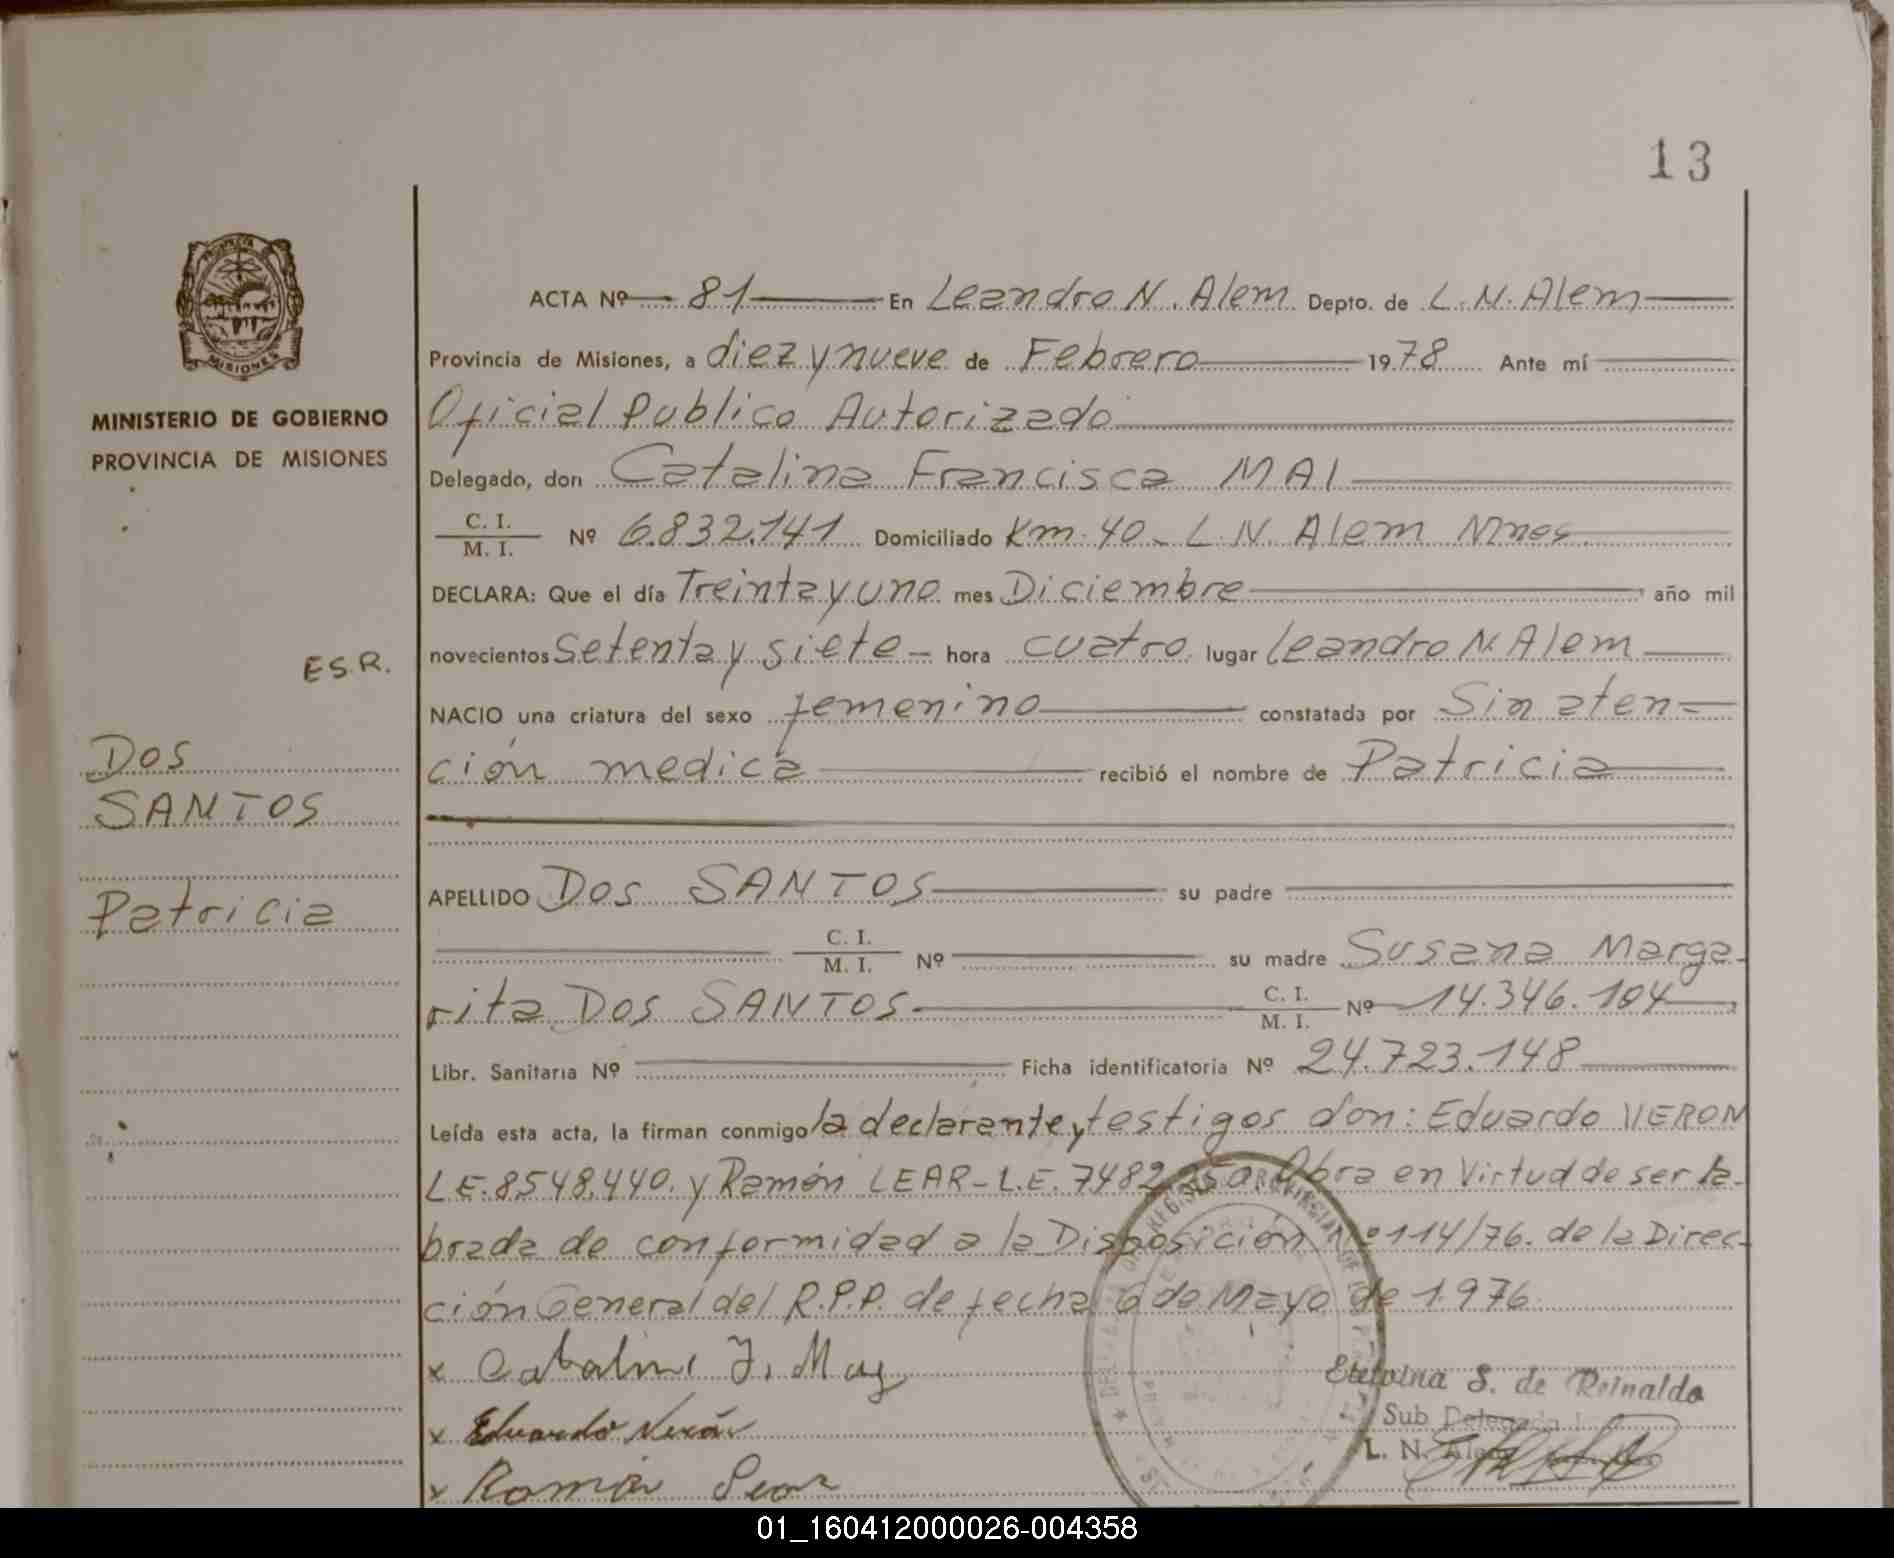 13
PROVINCIA
MISIONES
MINISTERIO DE GOBIERNO
PROVINCIA DE MISIONES
E.S.R.
Dos
SANTOS
Patricia
ACTA Nº 81 En Leandro N. Alem Depto. de L. N. Alem
Provincia de Misiones, a diez y nueve de Febrero 1978 Ante mí
Oficial Publico Autorizado
Delegado, don Catalina Francisca MAI
C. I.
M. I. Nº 6.832.141 Domiciliado Km. 40 - L. N. Alem Mnes.
DECLARA: Que el día Treinta y uno mes Diciembre año mil
novecientos Setenta y siete - hora cuatro lugar Leandro N. Alem
NACIO una criatura del sexo femenino constatada por Sin aten-
ción medica recibió el nombre de Patricia
APELLIDO Dos SANTOS su padre
C. I.
M. I. Nº su madre Susana Marga-
rita Dos SANTOS C. I.
M. I. Nº 14.346.104
Libr. Sanitaria Nº Ficha identificatoria Nº 24.723.148
Leída esta acta, la firman conmigo la declarante y testigos don: Eduardo VERON
L.E. 8548.440. y Ramón LEAR - L.E. 7482.250. Obra en Virtud de ser la-
brada de conformidad a la Disposición Nº 114/76. de la Direc-
ción General del R.P.P. de fecha 6 de Mayo de 1976.
x Catalina F. May
x Eduardo Verón
x Ramón Lear
S. de Reinaldo
Sub Delegada
L. N. Alem
01_160412000026-004358